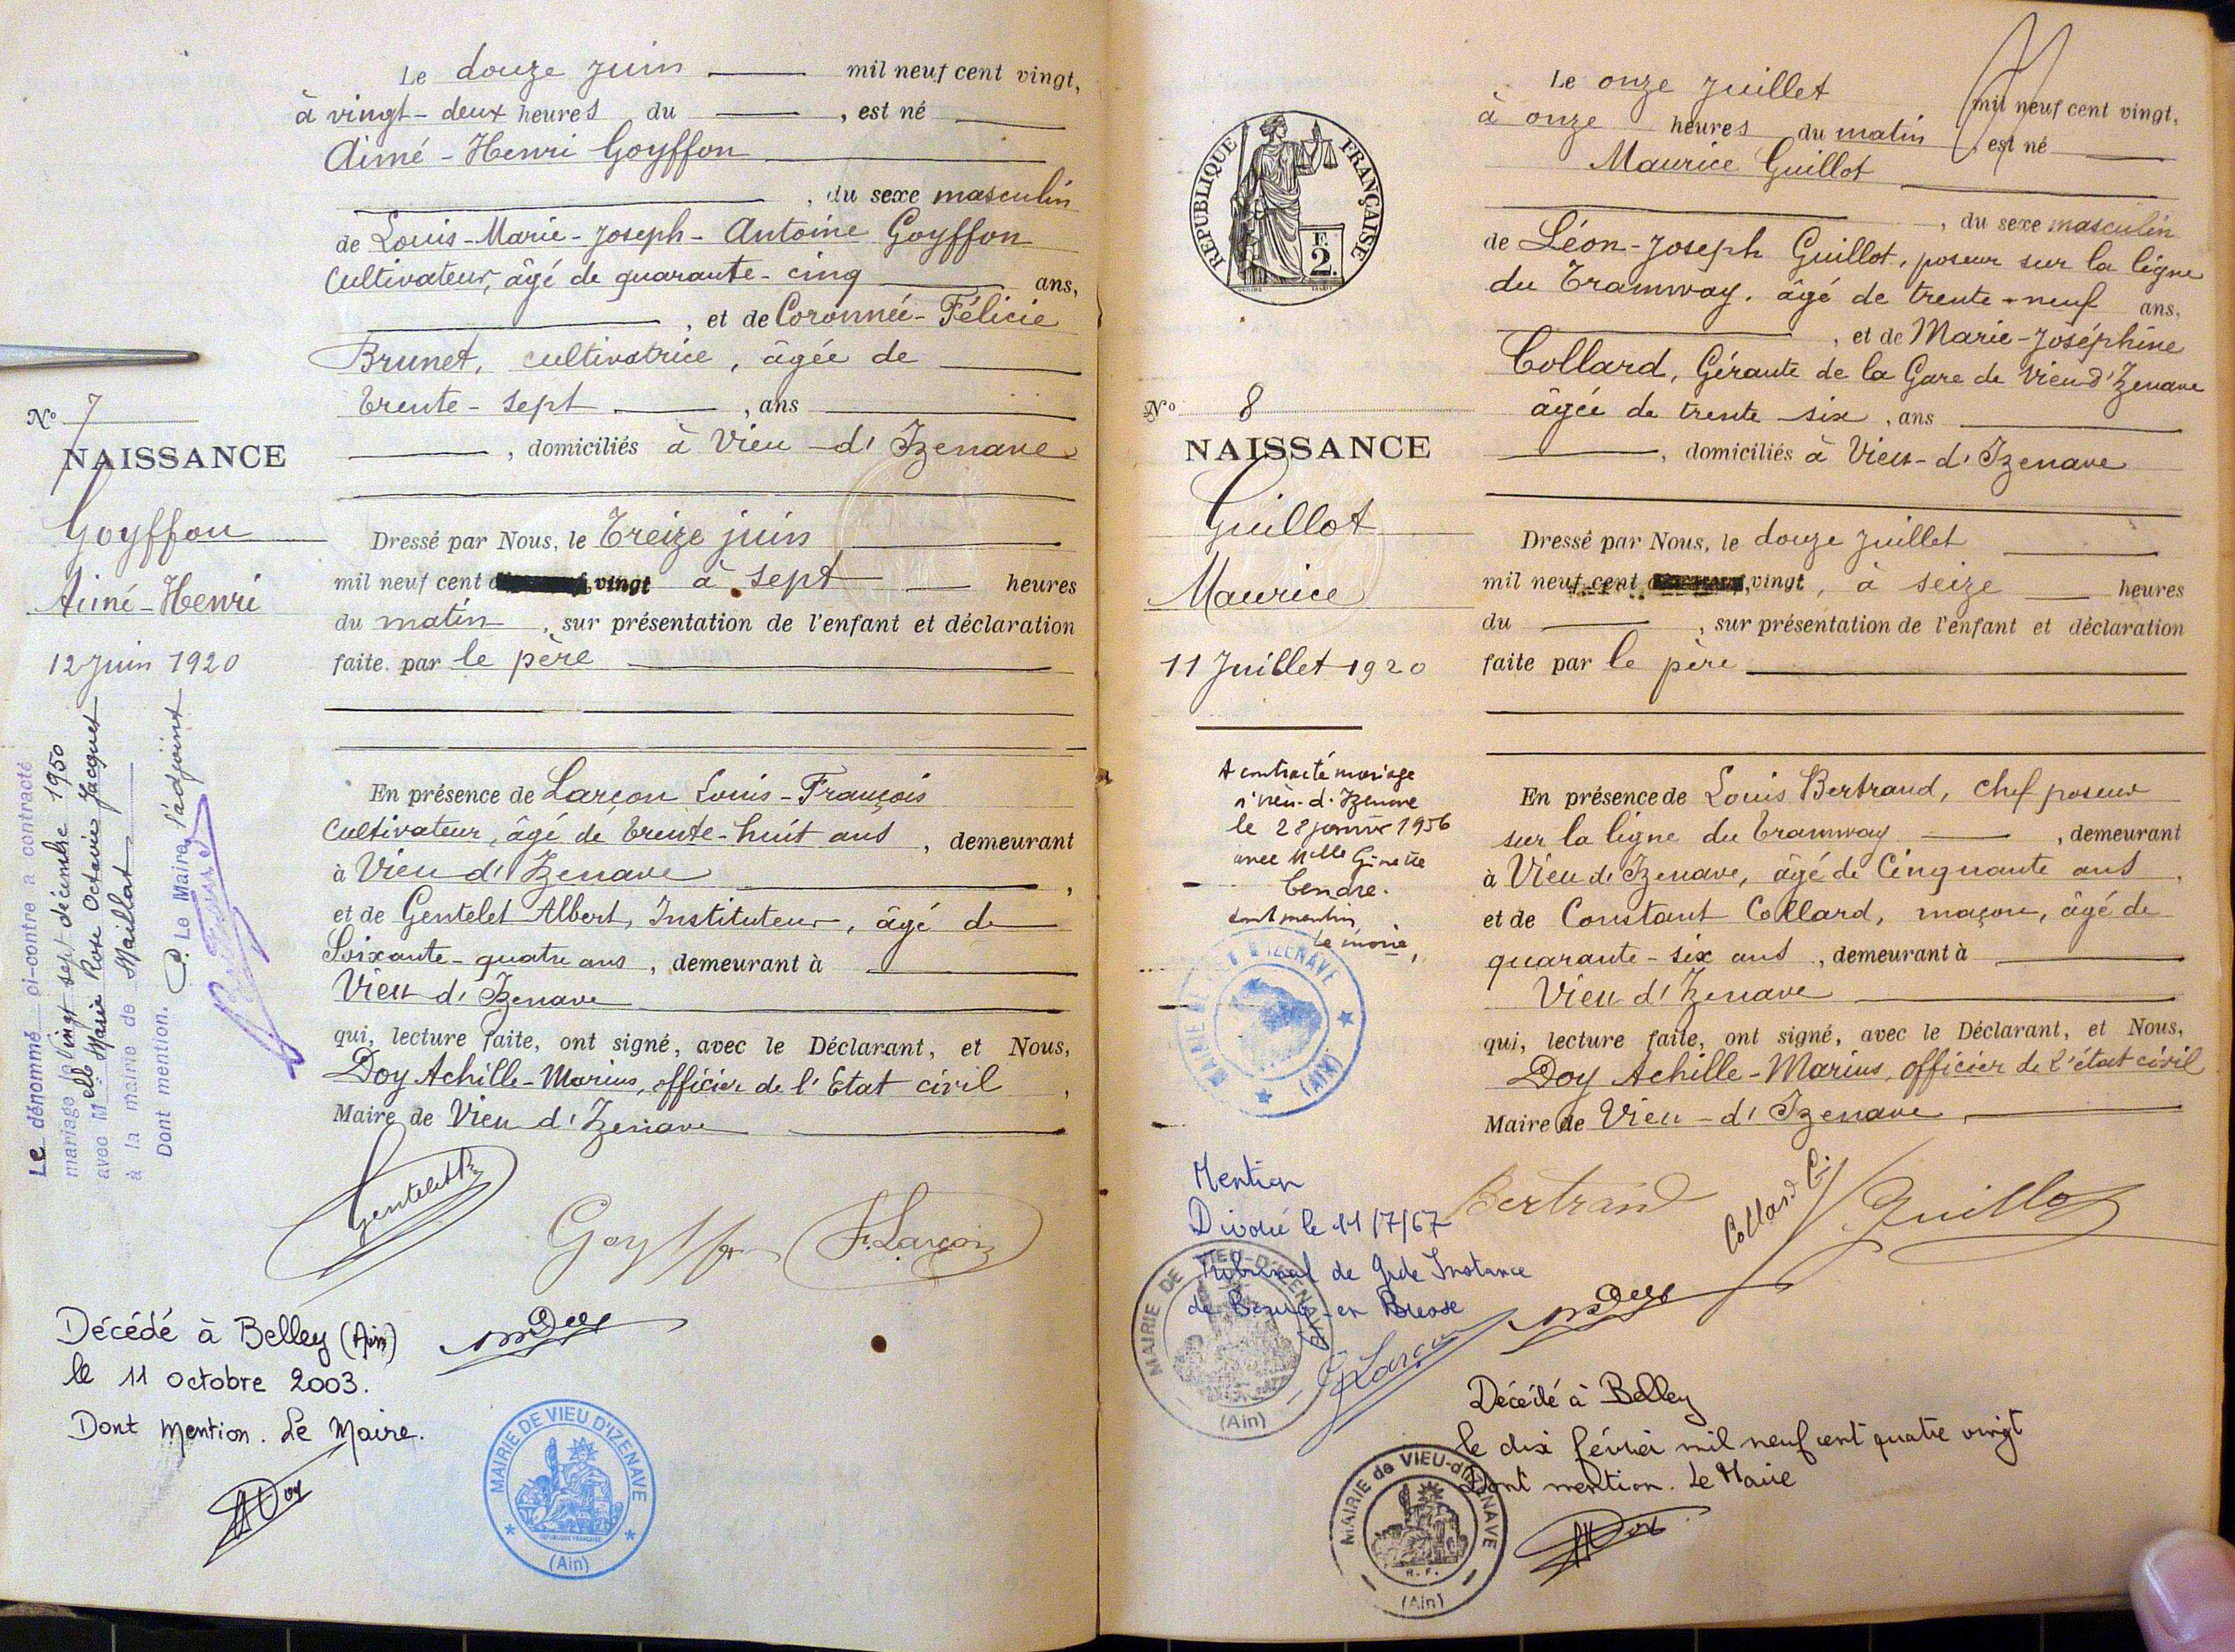 Le douze Juin mil neuf cent vingt,
à vingt-deux heures du , est né
Aimé-Henri Goyffon
, du sexe masculin
de Louis-Marie-Joseph-Antoine Goyffon
Cultivateur, âgé de quarante-cinq ans,
, et de Coronnée-Félicie
Brunet, cultivatrice, âgée de
trente-sept , ans
, domiciliés à Vieu-d'Izenave
No 7
NAISSANCE
Goyffon
Aimé-Henri
12 Juin 1920
Dressé par Nous, le Treize juin
mil neuf cent vingt à sept heures
du matin , sur présentation de l'enfant et déclaration
faite par le père
En présence de Larçon Louis-François
Cultivateur, âgé de trente-huit ans , demeurant
à Vieu d'Izenave ,
et de Gentelet Albert, Instituteur, âgé de
Soixante-quatre ans , demeurant à
Vieu d'Izenave
qui, lecture faite, ont signé, avec le Déclarant, et Nous,
Doy Achille-Marius, officier de l'Etat civil ,
Maire de Vieu d'Izenave
Le dénommé ci-contre a contracté
mariage le Vingt sept décembre 1950
avec Melle Marie Rose Octavie Jacquet
à la mairie de Maillat
Dont mention. P. Le Maire, l'adjoint
Gentelet
Goyffon
F. Larçon
Décédé à Belley (Ain)
le 11 Octobre 2003.
Dont Mention. Le Maire.
MAIRIE DE VIEU D'IZENAVE
(Ain)
REPUBLIQUE FRANÇAISE
F.
2.
Le onze Juillet mil neuf cent vingt,
à onze heures du matin , est né
Maurice Guillot
, du sexe masculin
de Léon-Joseph Guillot, poseur sur la ligne
du Tramway, âgé de trente-neuf ans,
, et de Marie-Joséphine
Collard, Gérante de la Gare de Vieu d'Izenave
âgée de trente six , ans
, domiciliés à Vieu-d'Izenave
No 8
NAISSANCE
Guillot
Maurice
11 Juillet 1920
Dressé par Nous, le douze Juillet
mil neuf cent vingt, à seize heures
du , sur présentation de l'enfant et déclaration
faite par le père
A contracté mariage
à Vieu-d'Izenave
le 28 janvier 1956
avec Melle Ginette
Cendre.
dont mention
le maire,
MAIRIE DE VIEU D'IZENAVE
(AIN)
En présence de Louis Bertrand, chef poseur
sur la ligne du tramway , demeurant
à Vieu d'Izenave, âgé de Cinquante ans ,
et de Constant Collard, maçon, âgé de
quarante-six ans , demeurant à
Vieu d'Izenave
qui, lecture faite, ont signé, avec le Déclarant, et Nous,
Doy Achille-Marius, officier de l'état civil
Maire de Vieu-d'Izenave
Bertrand
Collard C.
Guillot
Mention
Divorcé le 11/7/67
Tribunal de Gde Instance
de Bourg-en Bresse
MAIRIE DE VIEU-D'IZENAVE
(Ain)
Larçon
Décédé à Belley
le dix février mil neuf cent quatre vingt
Dont mention. Le Maire
MAIRIE de VIEU-d'IZENAVE
R.F.
(Ain)